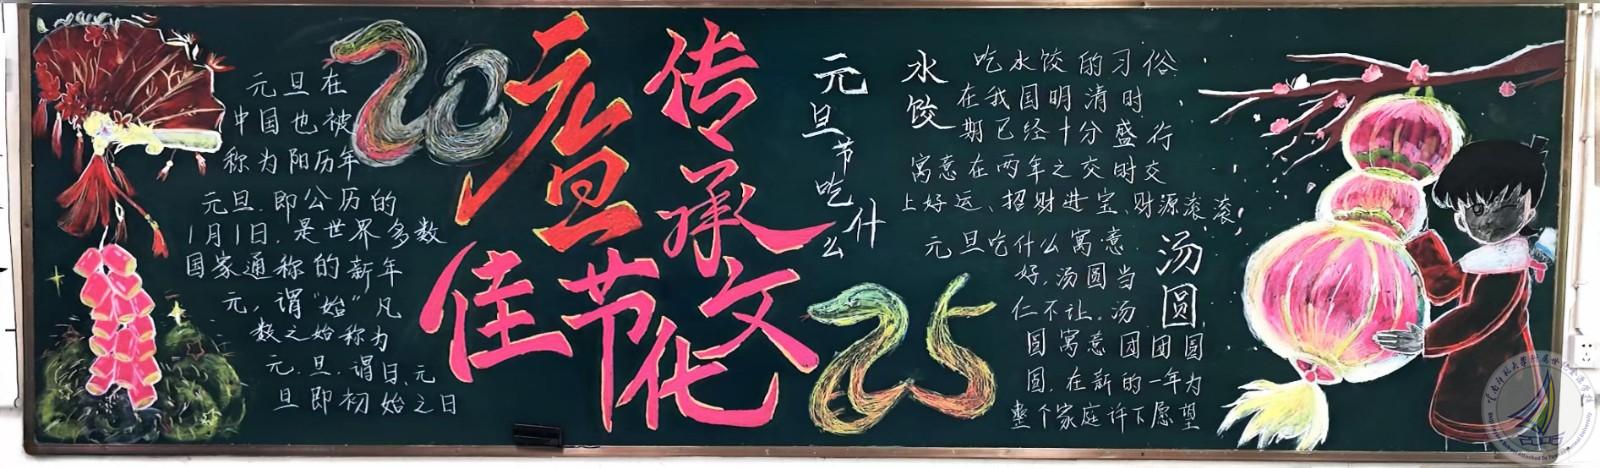 元旦在
中国也被
称为阳历年
元旦,即公历的
1月1日,是世界多数
国家通称的新年
元,谓"始"凡
数之始称为
元,旦,谓日,元
旦即初始之日
20
元旦
佳节
传承
文化
25
元旦节吃什么
水饺
吃水饺的习俗
在我国明清时
期已经十分盛行
寓意在两年之交时交
上好运、招财进宝、财源滚滚,
元旦吃什么寓意
好,汤圆当
仁不让,汤
圆寓意团团圆
圆,在新的一年为
整个家庭许下愿望
汤圆
云南师范大学附属世纪金源学校